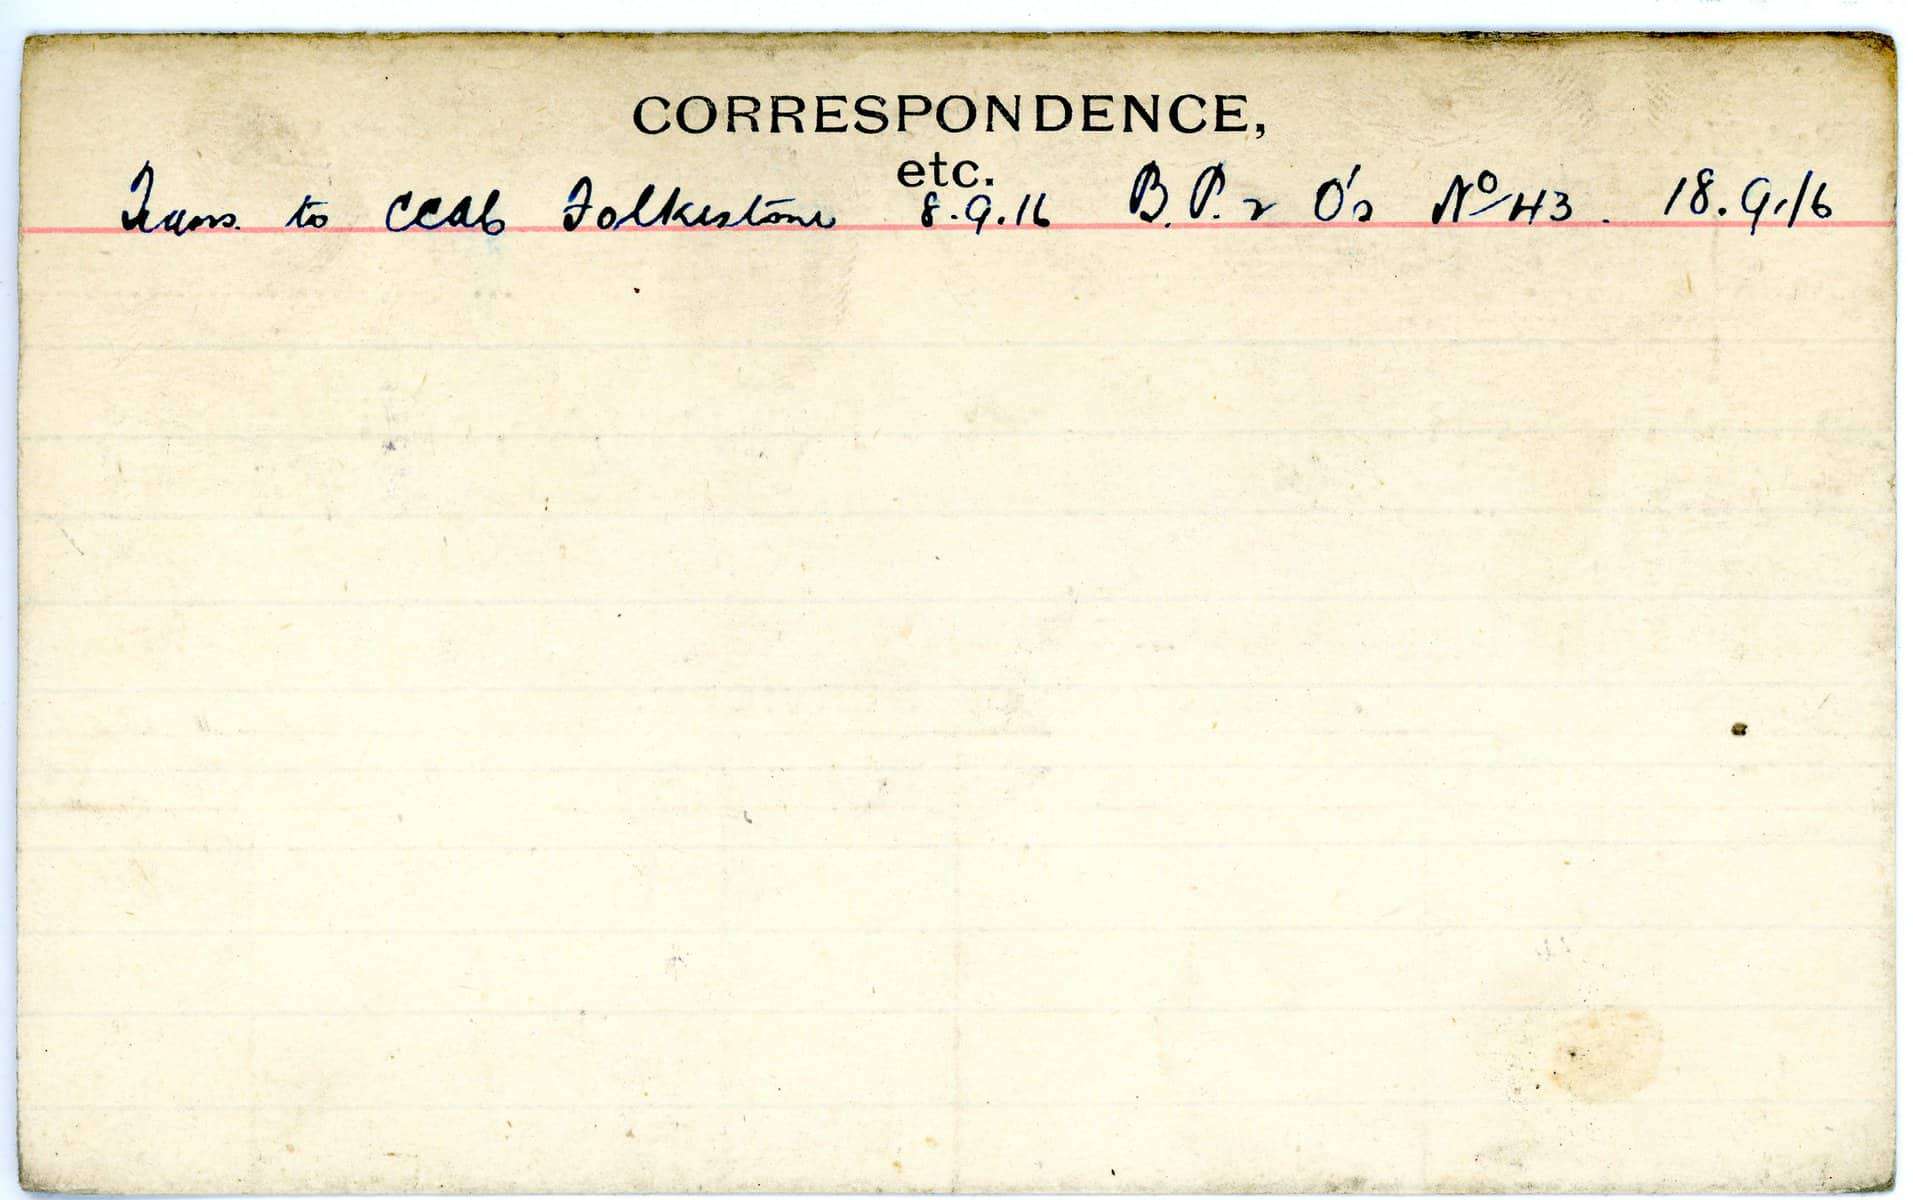 CORRESPONDENCE,
etc.
Trans. to CCAC Folkestone 8.9.16 B.P. 2 O's No 43. 18.9.16